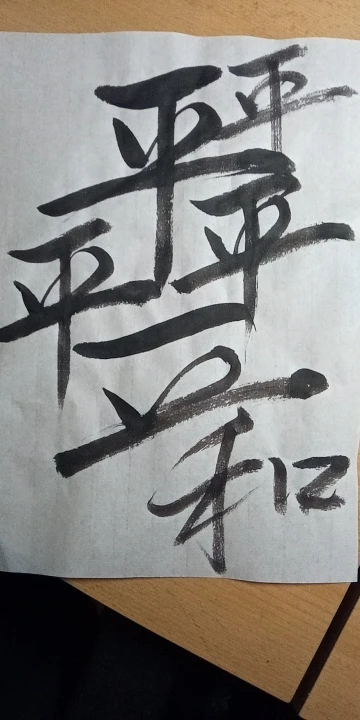 平平
平平
平
和